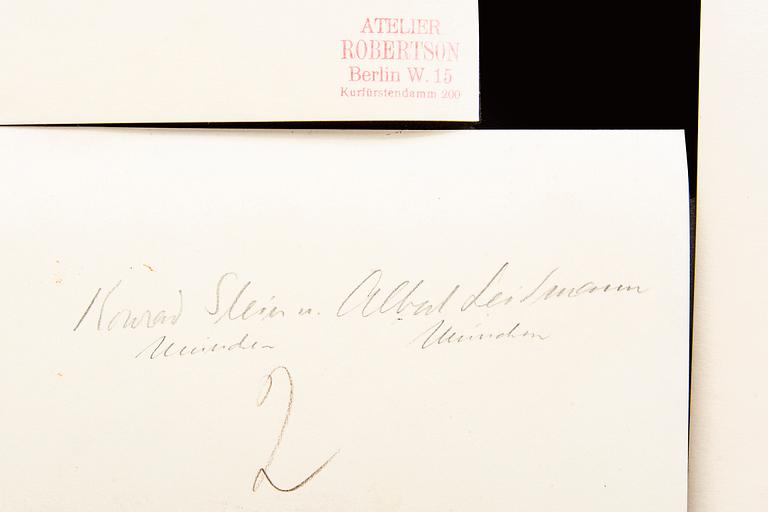 ATELIER
ROBERTSON
Berlin W. 15
Kurfürstendamm 200
Konrad Stein u. Albert Leidmann
München München
2